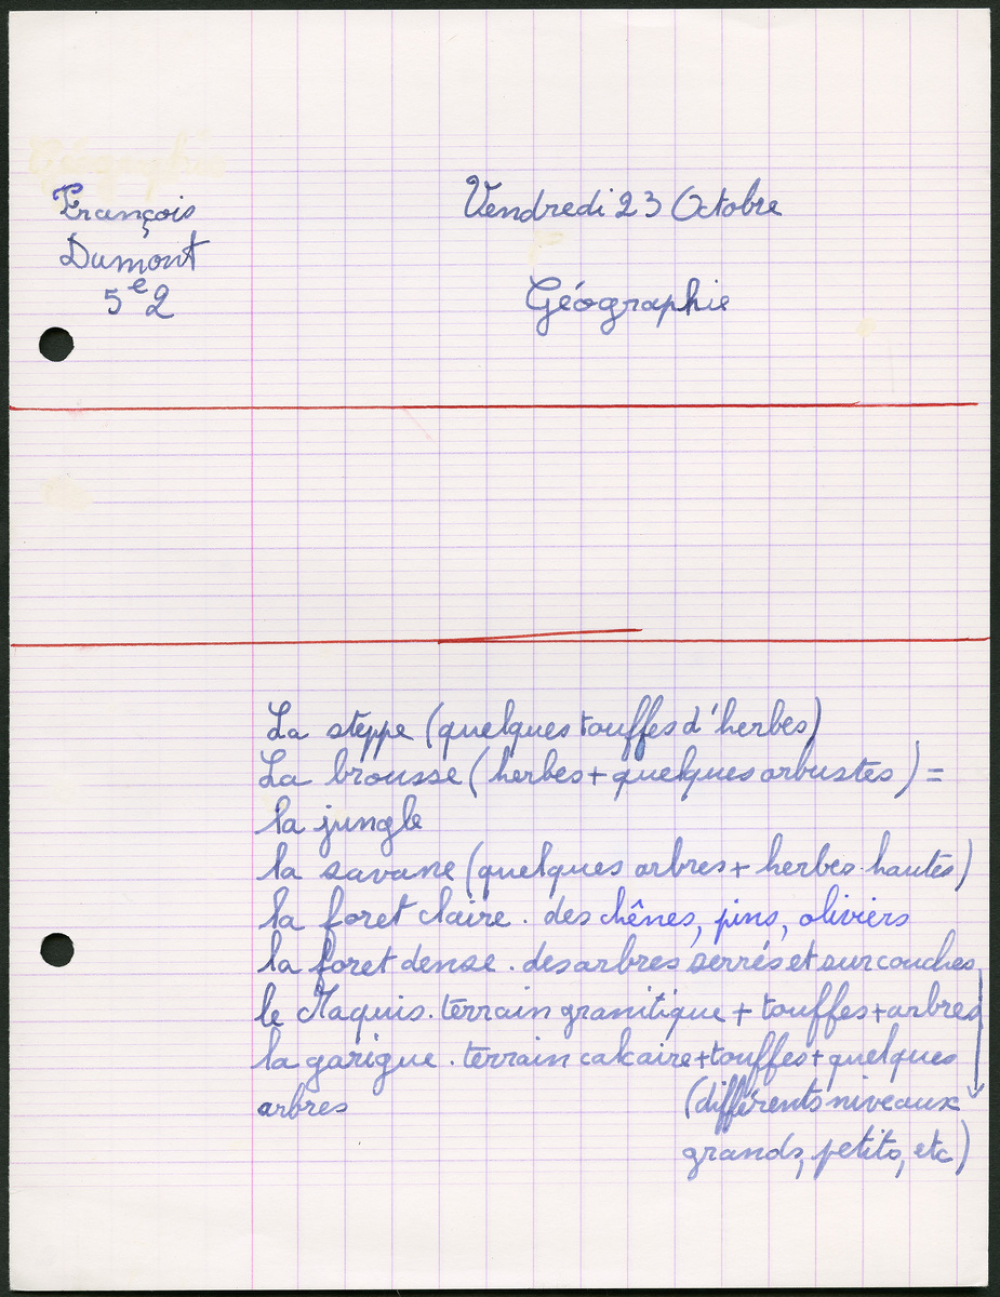 François
Dumont
5e2
Vendredi 23 Octobre
Géographie
La steppe (quelques touffes d'herbes)
La brousse (herbes + quelques arbustes) =
la jungle
la savane (quelques arbres + herbes hautes)
la foret claire. des chênes, pins, oliviers
la foret dense. des arbres serrés et sur couches
le Maquis. terrain granitique + touffes + arbres
la garigue. terrain calcaire + touffes + quelques
arbres
(différents niveaux
grands, petits, etc)